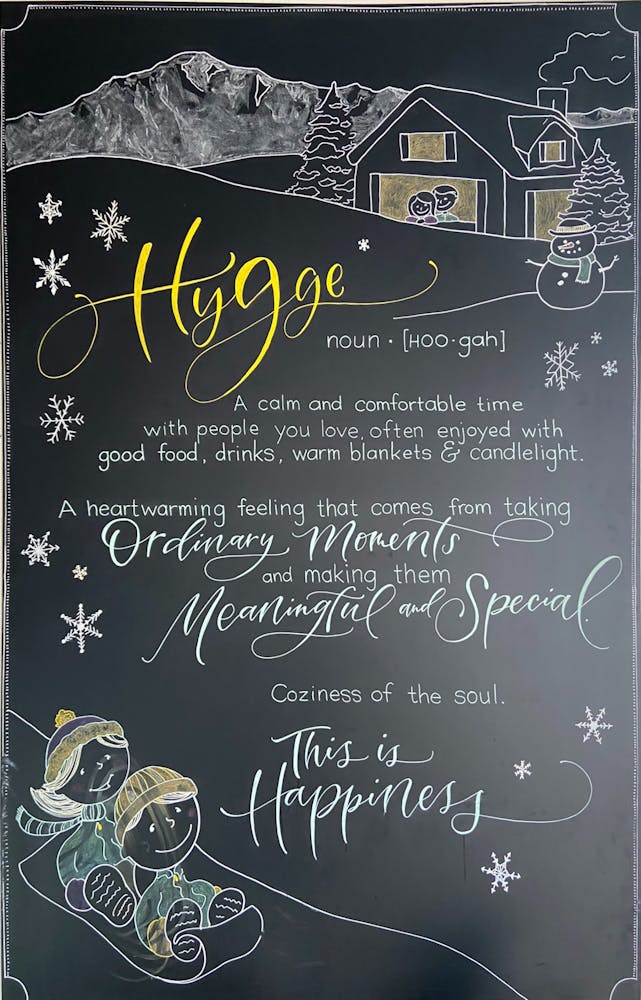 Hygge
noun • [HOO•gah]
A calm and comfortable time
with people you love, often enjoyed with
good food, drinks, warm blankets & candlelight.
A heartwarming feeling that comes from taking
Ordinary Moments
and making them
Meaningful and Special.
Coziness of the soul.
This is
Happiness